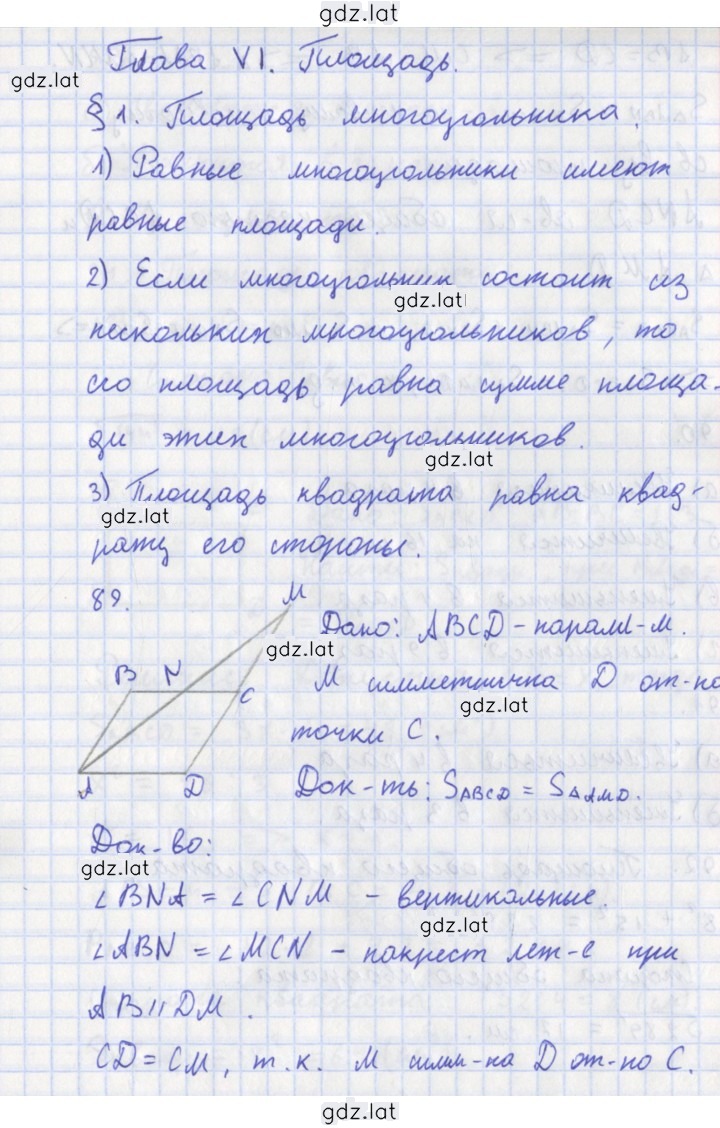 gdz.lat
Глава VI. Площадь.
gdz.lat
§ 1. Площадь многоугольника.
1) Равные многоугольники имеют
равные площади.
2) Если многоугольник состоит из
gdz.lat
нескольких многоугольников, то
его площадь равна сумме площа-
ди этих многоугольников.
gdz.lat
3) Площадь квадрата равна квад-
gdz.lat
рату его стороны.
89.
M
Дано: ABCD - паралл-м.
gdz.lat
B N C
M симметична D от-но
gdz.lat
точки C.
A D
Док-ть: SABCD = S△AMD.
Док-во:
gdz.lat
∠BNA = ∠CNM - вертикальные.
gdz.lat
∠ABN = ∠MCN - накрест леж-е при
AB || DM.
CD = CM, т.к. M симм-на D от-но C.
gdz.lat